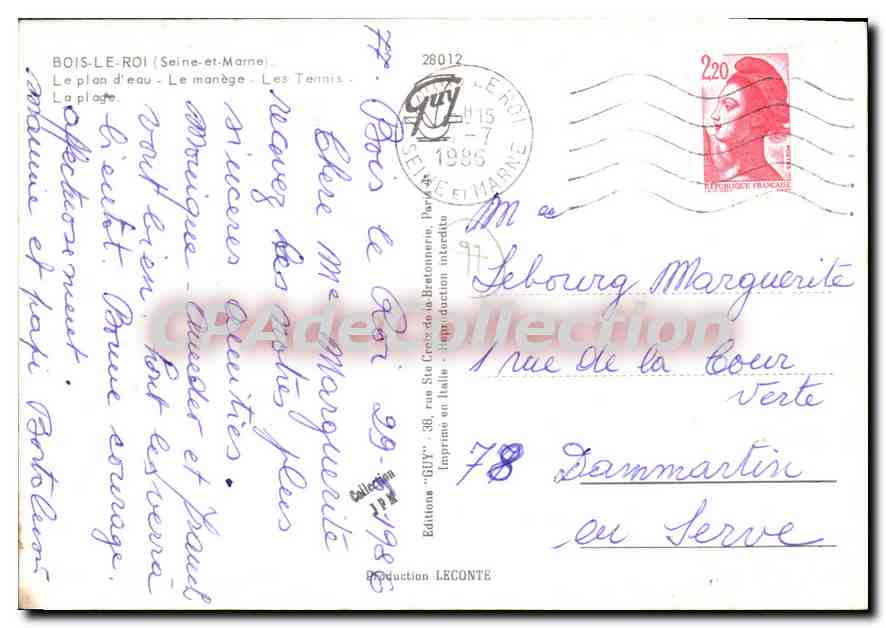 BOIS-LE-ROI (Seine-et-Marne).
Le plan d'eau - Le manège - Les Tennis -
La plage.
28012
Guy
LE ROI
15
-7
1986
SEINE ET MARNE
2,20
RÉPUBLIQUE FRANÇAISE
77. Bois le Roi 29-1986
Chère Me Marguerite
recevez les notres plus
sincères amitiés.
Monique - et Franck
vont bien. les verra
bientôt. Bonne courage.
affectueusement.
Mamie et papi
Editions "GUY" - 38, rue Ste Croix de la Bretonnerie, Paris 4e
Imprimé en Italie - Reproduction interdite
Collection
JPM
Production LECONTE
77
Mme
Lebourg Marguerite
1 rue de la Cour
Verte
78 Dammartin
en Serve
CPAdeCollection